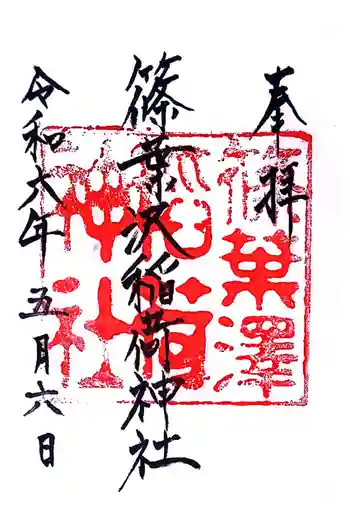 奉拝
篠葉沢稲荷神社
令和六年五月六日
篠葉澤
稲荷
神社